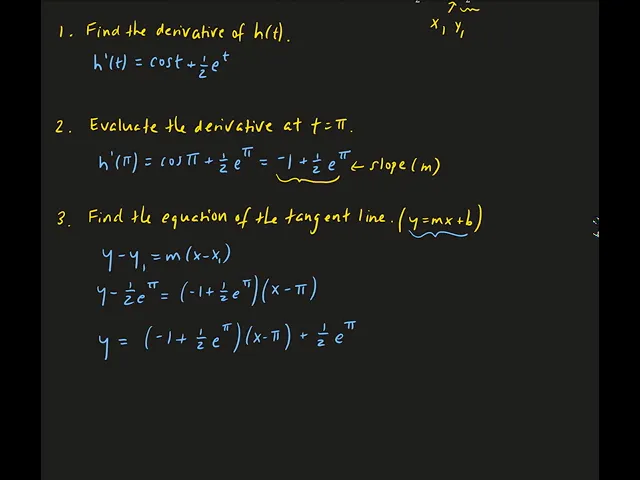 1. Find the derivative of h(t).
x₁ y₁
h'(t) = cost + 1/2 e^t
2. Evaluate the derivative at t = π.
h'(π) = cosπ + 1/2 e^π = -1 + 1/2 e^π ← slope (m)
3. Find the equation of the tangent line. (y = mx + b)
y - y₁ = m(x - x₁)
y - 1/2 e^π = (-1 + 1/2 e^π)(x - π)
y = (-1 + 1/2 e^π)(x - π) + 1/2 e^π